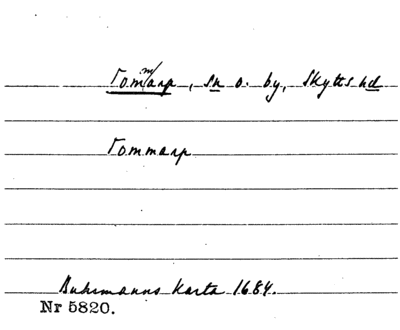 Tommarp, sn o. by, Skytts hd
Tommarp
Buhrmanns Karta 1684.
Nr 5820.